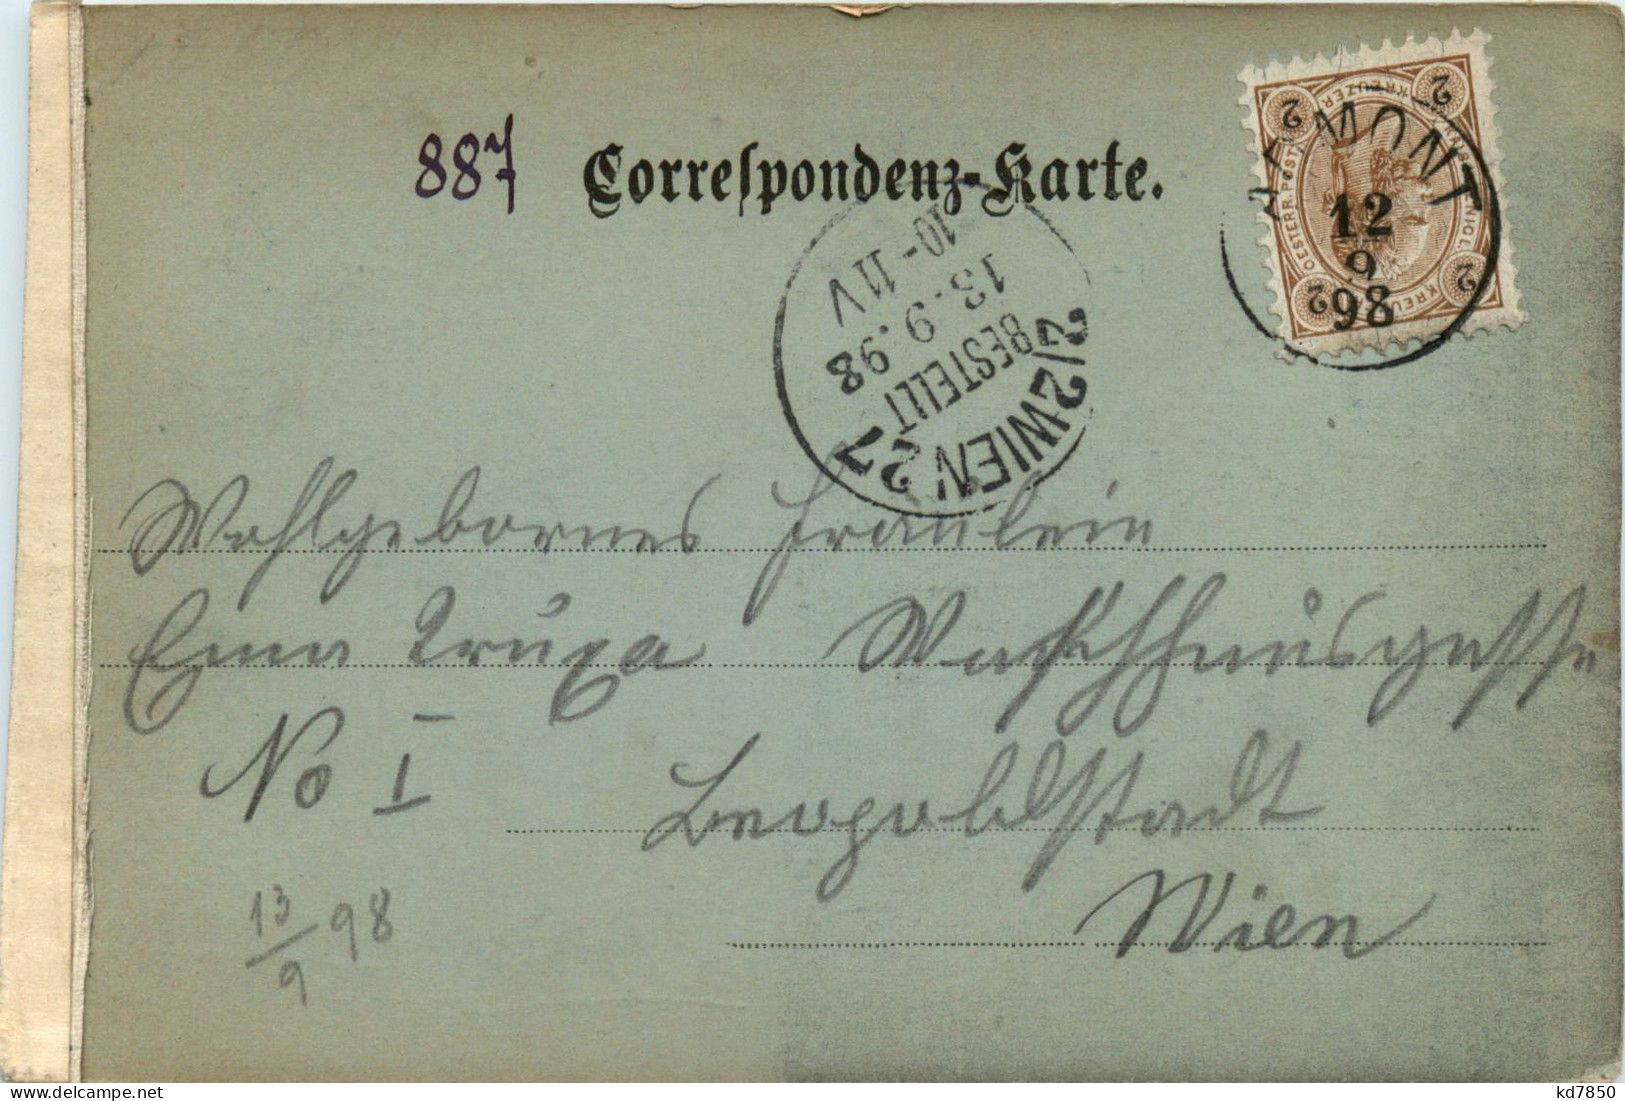 887 Correspondenz-Karte.
2 2 2 2
KREUZER
OESTERR. POST
MONT
12
9
98
10-11V
13.9.98
BESTELLT
2/2 WIEN 27
Wohlgebornes Fräulein
Emma Truxa Waschhausgasse
No I Leopoldstadt
13/9 98 Wien
kd7850